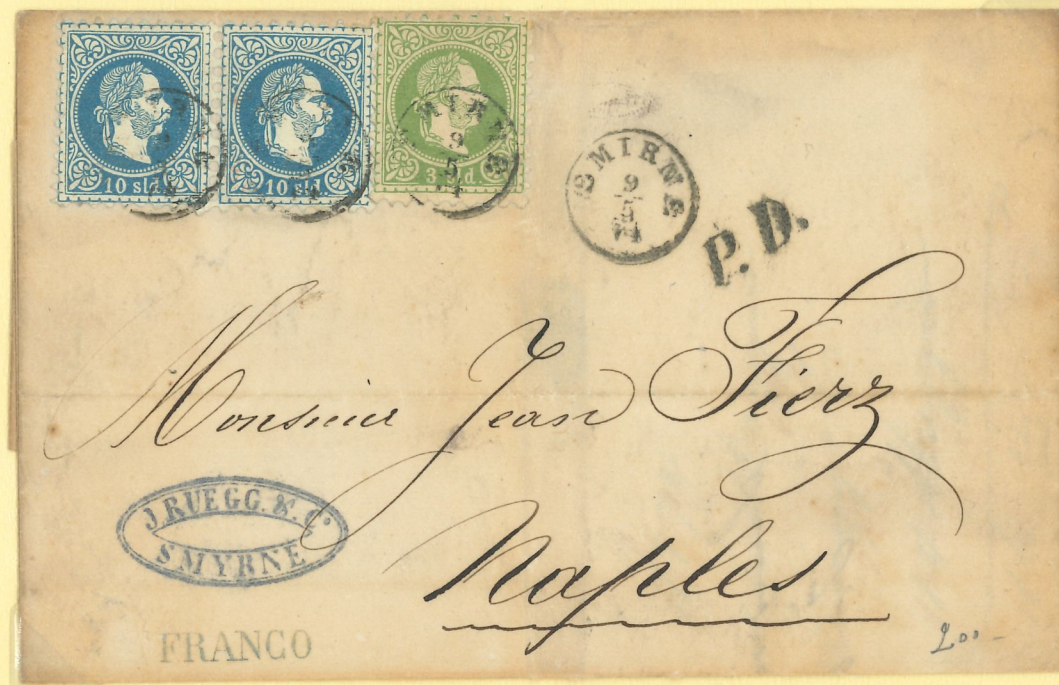 10 sld.
10 sld.
SMIRNE
9
5
SMIRNE
9
5
74
P. D.
Monsieur Jean Fierz
Naples
J. RUEGG. & Cº
SMYRNE
FRANCO
200-